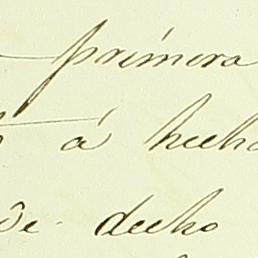 primera
á hecho
de dicho